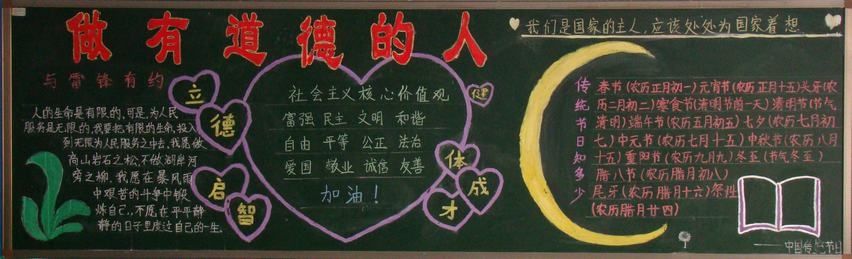 做有道德的人
我们是国家的主人,应该处处为国家着想
与雷锋有约
人的生命是有限的,可是,为人民
服务是无限的,我要把有限的生命,投入
到无限为人民服务之中去,我愿做
高山岩石之松,不做湖岸河
旁之柳,我愿在暴风雨
中艰苦的斗争中锻
炼自己,不愿在平平静
静的日子里度过自己的一生.
立
德
启
智
社会主义核心价值观
富强 民主 文明 和谐
自由 平等 公正 法治
爱国 敬业 诚信 友善
加油!
健
体
成
才
传统节日知多少
春节(农历正月初一)元宵节(农历正月十五)头牙(农
历二月初二)寒食节(清明节前一天)清明节(节气
清明)端午节(农历五月初五)七夕(农历七月初
七)中元节(农历七月十五)中秋节(农历八月
十五)重阳节(农历九月九)冬至(节气冬至)
腊八节(农历腊月初八)
尾牙(农历腊月十六)祭灶
(农历腊月廿四)
——中国传统节日